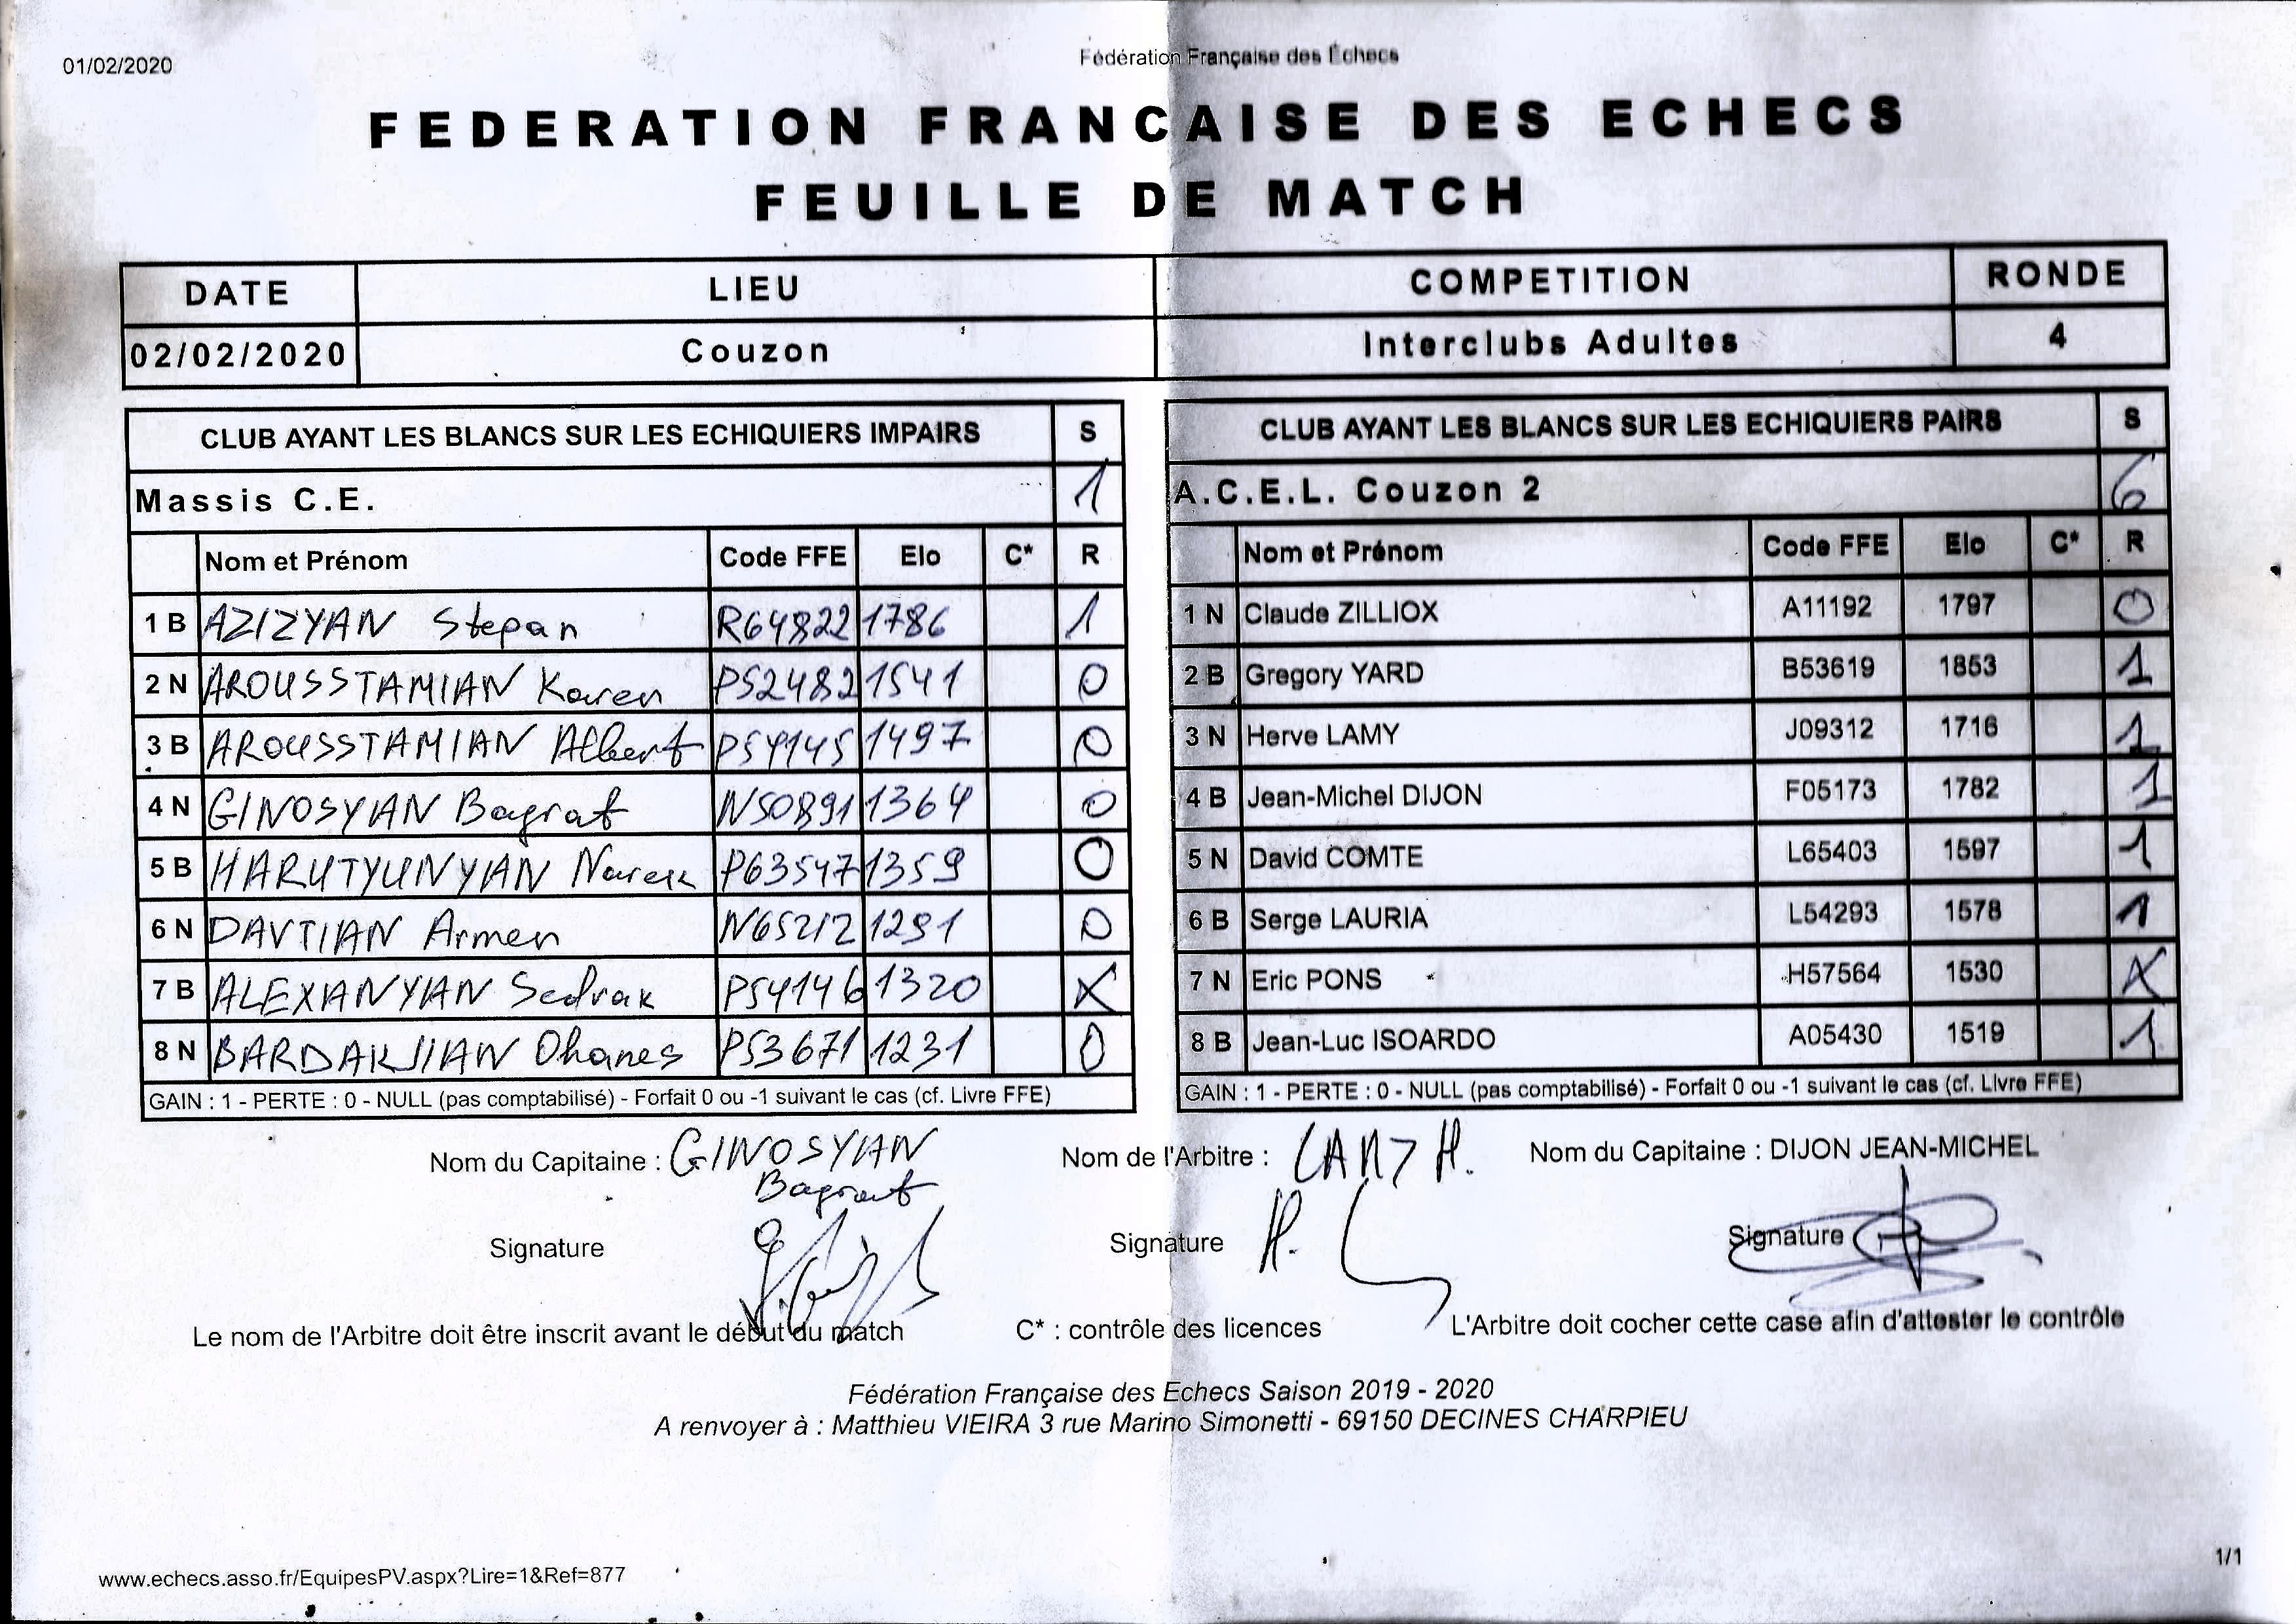 01/02/2020
Fédération Française des Échecs
FEDERATION FRANCAISE DES ECHECS
FEUILLE DE MATCH
DATE LIEU COMPETITION RONDE
02/02/2020 Couzon Interclubs Adultes 4
CLUB AYANT LES BLANCS SUR LES ECHIQUIERS IMPAIRS S
Massis C.E. 1
Nom et Prénom Code FFE Elo C* R
1 B AZIZYAN Stepan R64822 1786 1
2 N AROUSSTAMIAN Karen P52482 1541 0
3 B AROUSSTAMIAN Albert P54145 1497 0
4 N GINOSYAN Bagrat N50891 1364 0
5 B HARUTYUNYAN Narek P63547 1359 0
6 N DAVTIAN Armen N65212 1291 0
7 B ALEXANYAN Sedrak P54146 1320 X
8 N BARDAKJIAN Ohanes P53671 1231 0
GAIN : 1 - PERTE : 0 - NULL (pas comptabilisé) - Forfait 0 ou -1 suivant le cas (cf. Livre FFE)
CLUB AYANT LES BLANCS SUR LES ECHIQUIERS PAIRS S
A.C.E.L. Couzon 2 6
Nom et Prénom Code FFE Elo C* R
1 N Claude ZILLIOX A11192 1797 0
2 B Gregory YARD B53619 1853 1
3 N Herve LAMY J09312 1716 1
4 B Jean-Michel DIJON F05173 1782 1
5 N David COMTE L65403 1597 1
6 B Serge LAURIA L54293 1578 1
7 N Eric PONS H57564 1530 X
8 B Jean-Luc ISOARDO A05430 1519 1
GAIN : 1 - PERTE : 0 - NULL (pas comptabilisé) - Forfait 0 ou -1 suivant le cas (cf. Livre FFE)
Nom du Capitaine : GINOSYAN
Bagrat
Nom de l'Arbitre : H.
Nom du Capitaine : DIJON JEAN-MICHEL
Signature
Signature H. L
Signature
Le nom de l'Arbitre doit être inscrit avant le début du match
C* : contrôle des licences
L'Arbitre doit cocher cette case afin d'attester le contrôle
Fédération Française des Echecs Saison 2019 - 2020
A renvoyer à : Matthieu VIEIRA 3 rue Marino Simonetti - 69150 DECINES CHARPIEU
www.echecs.asso.fr/EquipesPV.aspx?Lire=1&Ref=877
1/1